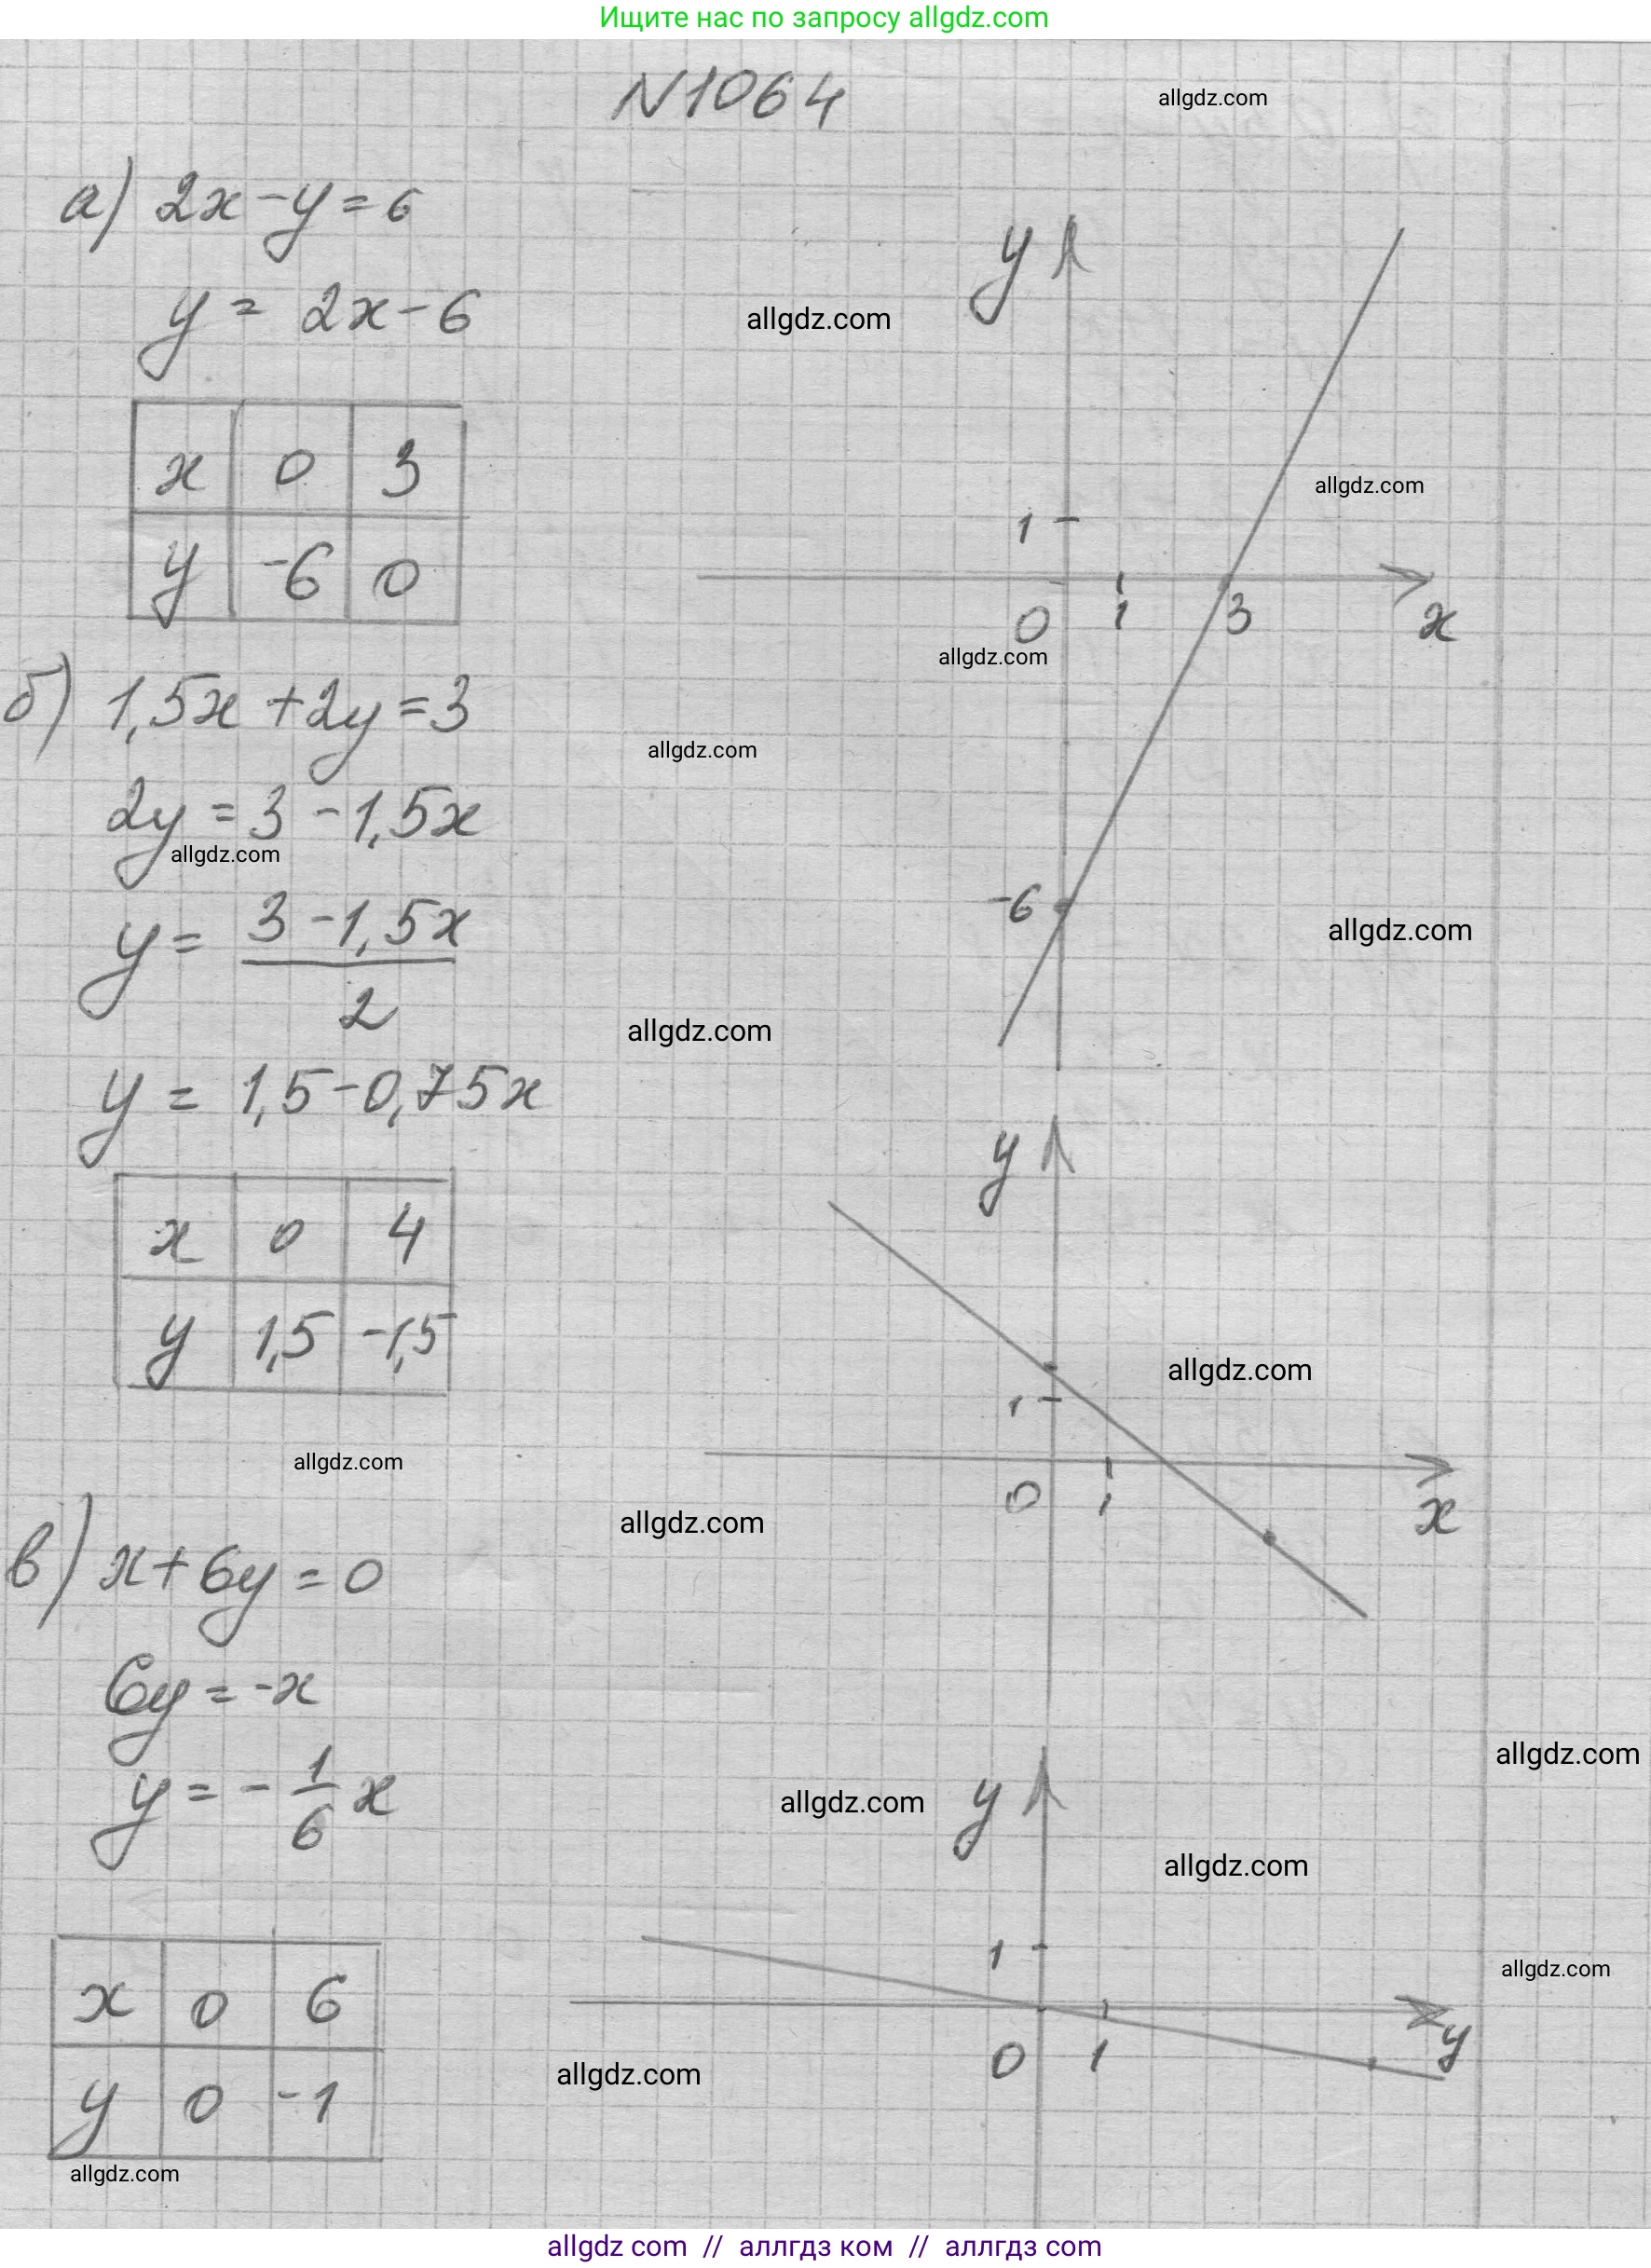 Ищите нас по запросу allgdz.com
N1064
allgdz.com
а) 2x-y=6
y = 2x-6
allgdz.com
x 0 3
y -6 0
y
1
0 1 3 x
-6
allgdz.com
allgdz.com
б) 1,5x+2y=3
allgdz.com
2y=3-1,5x
allgdz.com
y = 3-1,5x / 2
allgdz.com
allgdz.com
y = 1,5-0,75x
x 0 4
y 1,5 -1,5
y
1
0 1 x
allgdz.com
allgdz.com
allgdz.com
в) x+6y=0
6y=-x
y = -1/6 x
allgdz.com
allgdz.com
allgdz.com
x 0 6
y 0 -1
y
1
0 1 y
allgdz.com
allgdz.com
allgdz.com
allgdz com // аллгдз ком // аллгдз com